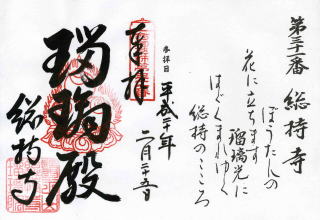 第三十二番 総持寺
ぼうたんの
花に立ちます
瑠璃光に
はぐくまれゆく
総持のこころ
参拝日 平成二十年
二月二十五日
奉拝
瑠璃殿
総持寺